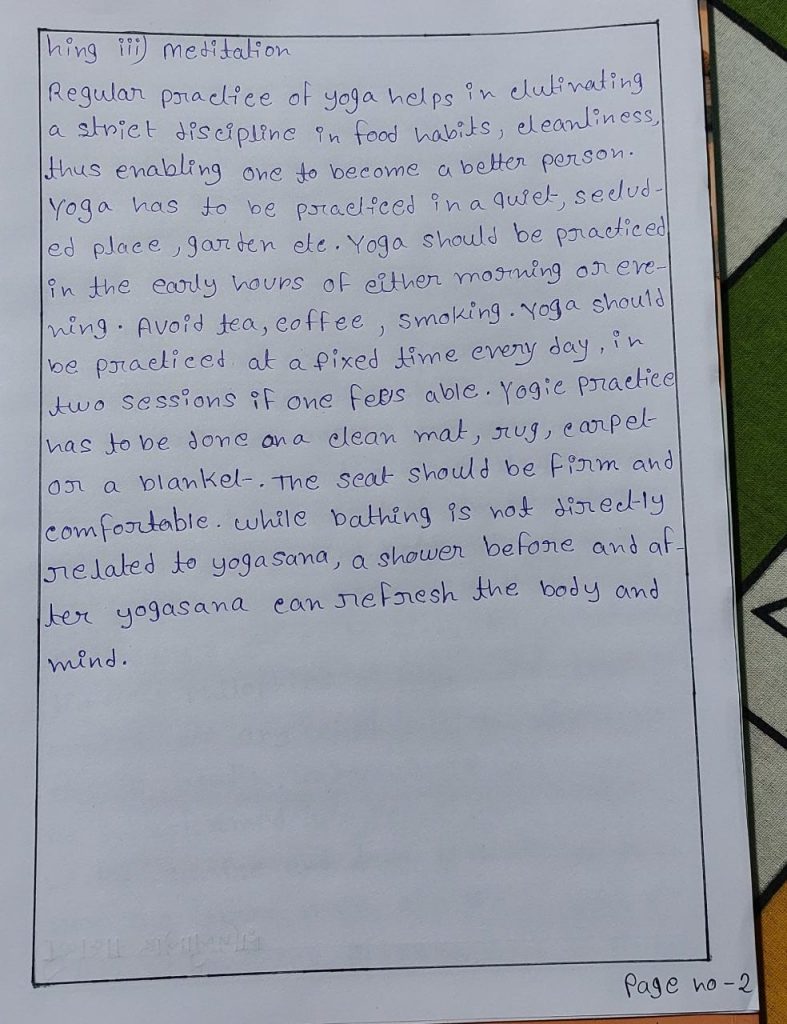 hing iii) meditation
Regular practice of yoga helps in clutivating
a strict discipline in food habits, cleanliness,
thus enabling one to become a better person.
Yoga has to be practiced in a quiet, seclud-
ed place, garden etc. Yoga should be practiced
in the early hours of either morning or eve-
ning. Avoid tea, coffee, smoking. Yoga should
be practiced at a fixed time every day, in
two sessions if one feels able. Yogic practice
has to be done on a clean mat, rug, carpet
or a blanket. The seat should be firm and
comfortable. while bathing is not directly
related to yogasana, a shower before and af-
ter yogasana can refresh the body and
mind.
Page no-2